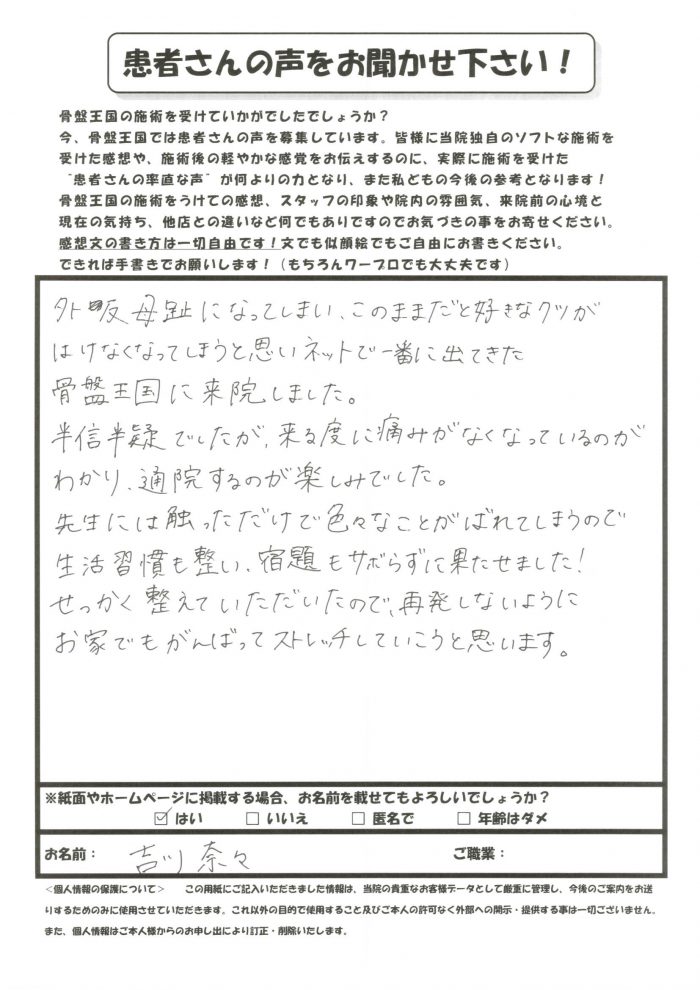 患者さんの声をお聞かせ下さい！
骨盤王国の施術を受けていかがでしたでしょうか？
今、骨盤王国では患者さんの声を募集しています。皆様に当院独自のソフトな施術を
受けた感想や、施術後の軽やかな感覚をお伝えするのに、実際に施術を受けた
"患者さんの率直な声"が何よりの力となり、また私どもの今後の参考となります！
骨盤王国の施術をうけての感想、スタッフの印象や院内の雰囲気、来院前の心境と
現在の気持ち、他店との違いなど何でもありですのでお気づきの事をお寄せください。
感想文の書き方は一切自由です！文でも似顔絵でもご自由にお書きください。
できれば手書きでお願いします！（もちろんワープロでも大丈夫です）
外反母趾になってしまい、このままだと好きなクツが
はけなくなってしまうと思いネットで一番に出てきた
骨盤王国に来院しました。
半信半疑でしたが、来る度に痛みがなくなっているのが
わかり、通院するのが楽しみでした。
先生には触っただけで色々なことがばれてしまうので
生活習慣も整い、宿題もサボらずに果たせました！
せっかく整えていただいたので、再発しないように
お家でもがんばってストレッチしていこうと思います。
※紙面やホームページに掲載する場合、お名前を載せてもよろしいでしょうか？
☑ はい □ いいえ □ 匿名で □ 年齢はダメ
お名前： 吉川 奈々 ご職業：
＜個人情報の保護について＞ この用紙にご記入いただきました情報は、当院の貴重なお客様データとして厳重に管理し、今後のご案内をお送
りするためのみに使用させていただきます。これ以外の目的で使用すること及びご本人の許可なく外部への開示・提供する事は一切ございません。
また、個人情報はご本人様からのお申し出により訂正・削除いたします。